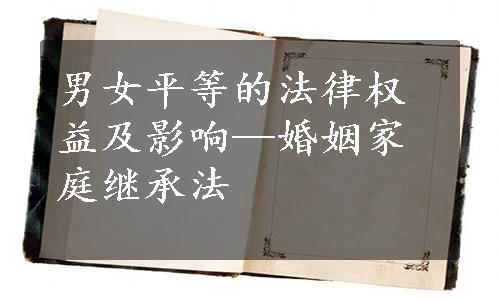 男女平等的法律权
益及影响—婚姻家
庭继承法